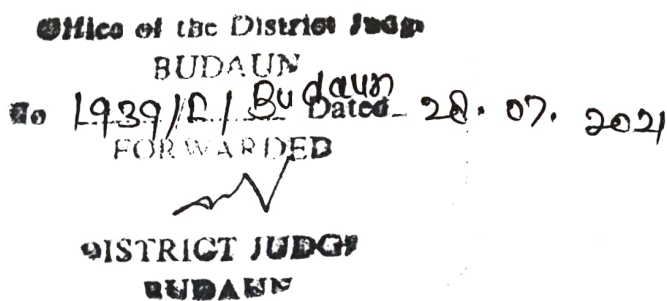 Office of the District Judge
BUDAUN
No 1939/D/ Budaun Dated 28. 07. 2021
FORWARDED
DISTRICT JUDGE
BUDAUN